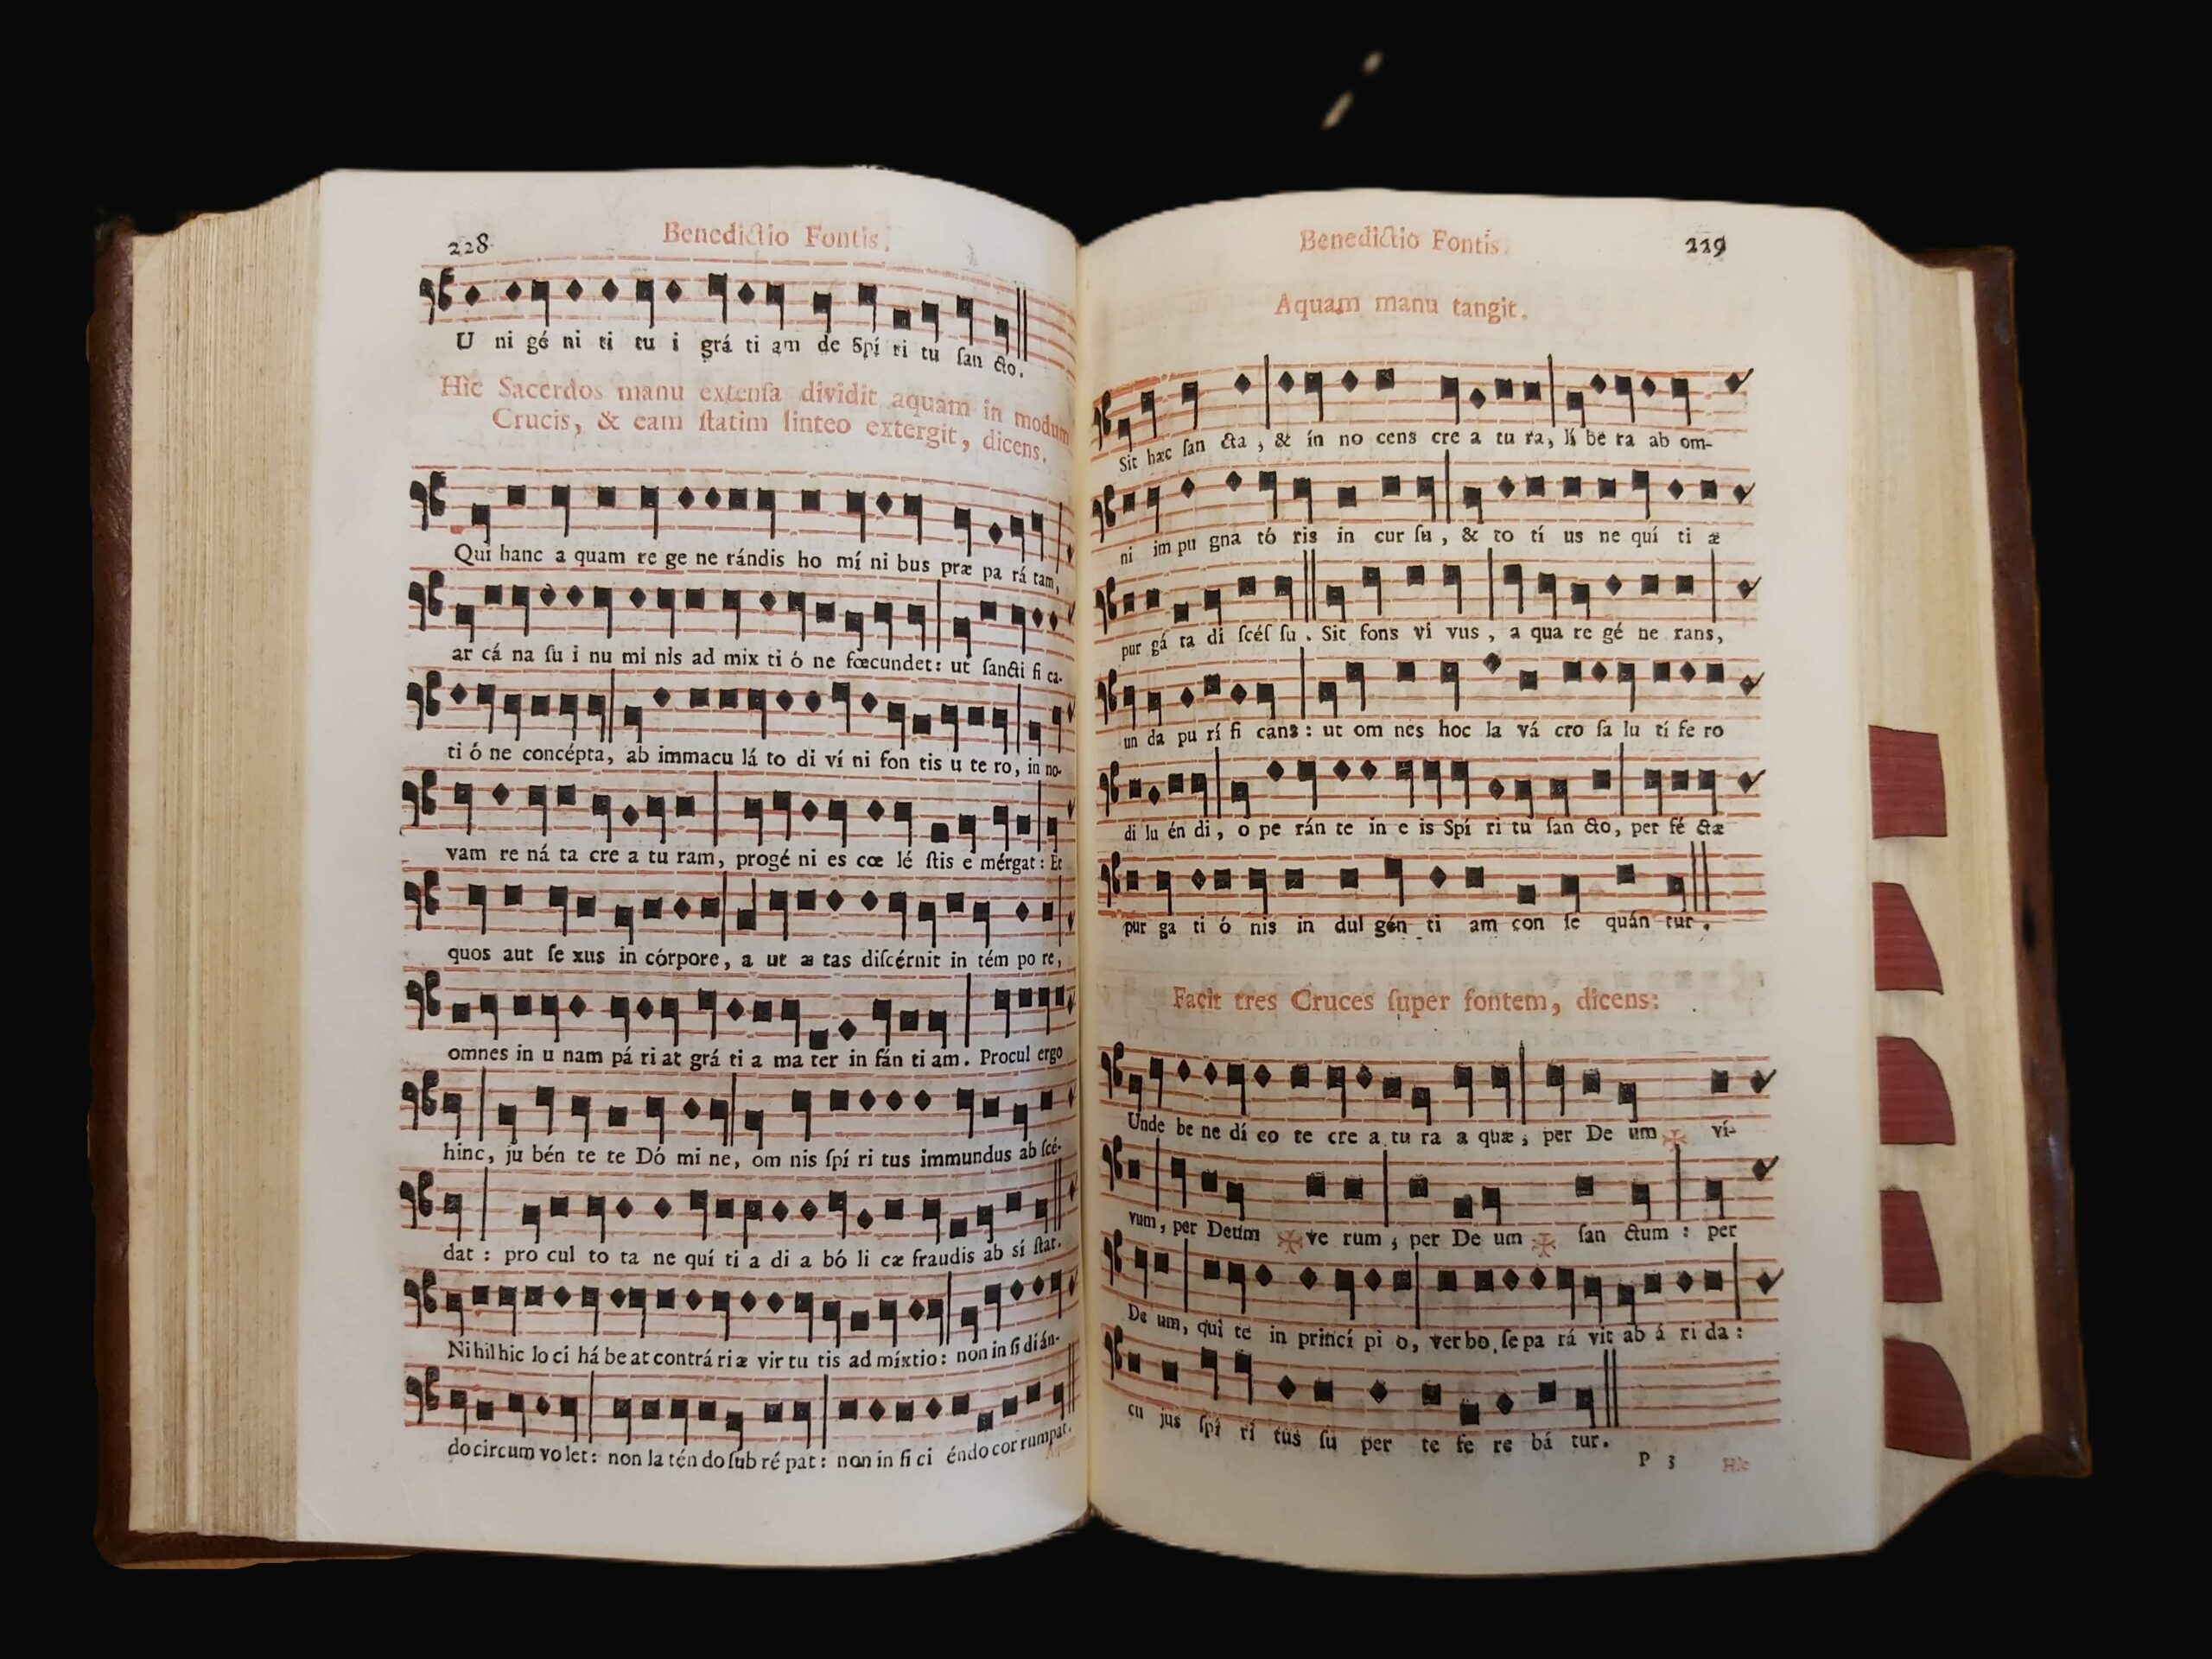 228
Benedictio Fontis.
U ni gé ni ti tu i grá ti am de Spí ri tu ſan cto.
Hic Sacerdos manu extenſa dividit aquam in modum
Crucis, & eam ſtatim linteo extergit, dicens.
Qui hanc a quam re ge ne rándis ho mí ni bus præ pa rá tam,
ar cá na ſu i nu mi nis ad mix ti ó ne fœcundet: ut ſancti fi ca-
ti ó ne concépta, ab immacu lá to di ví ni fon tis u te ro, in no-
vam re ná ta cre a tu ram, progé ni es cœ lé ſtis e mérgat: Et
quos aut ſe xus in córpore, a ut æ tas diſcérnit in tém po re,
omnes in u nam pá ri at grá ti a ma ter in fán ti am. Procul ergo
hinc, ju bén te te Dó mi ne, om nis ſpí ri tus immundus ab ſcé-
dat: pro cul to ta ne quí ti a di a bó li cæ fraudis ab sí ſtat.
Ni hil hic lo ci há be at contrá ri æ vir tu tis ad míxtio: non in ſi di án-
do circum vo let: non la tén do ſub ré pat: non in fi ci éndo cor rumpat.
Benedictio Fontis.
229
Aquam manu tangit.
Sit hæc ſan cta, & ín no cens cre a tu ra, lí be ra ab om-
ni im pu gna tó ris in cur ſu, & to tí us ne quí ti æ
pur gá ta di ſcéſ ſu. Sit fons ví vus, a qua re gé ne rans,
un da pu rí fi cans: ut om nes hoc la vá cro ſa lu tí fe ro
di lu én di, o pe rán te in e is Spí ri tu ſan cto, per fé ctæ
pur ga ti ó nis in dul gén ti am con ſe quán tur.
Facit tres Cruces ſuper fontem, dicens:
Unde be ne dí co te cre a tu ra a quæ, per De um ✠ ví-
vum, per Deum ✠ ve rum, per De um ✠ ſan ctum: per
De um, qui te in princí pi o, verbo, ſe pa rá vit ab á ri da:
cu jus ſpí ri tus ſu per te fe re bá tur.
P 3
Hic